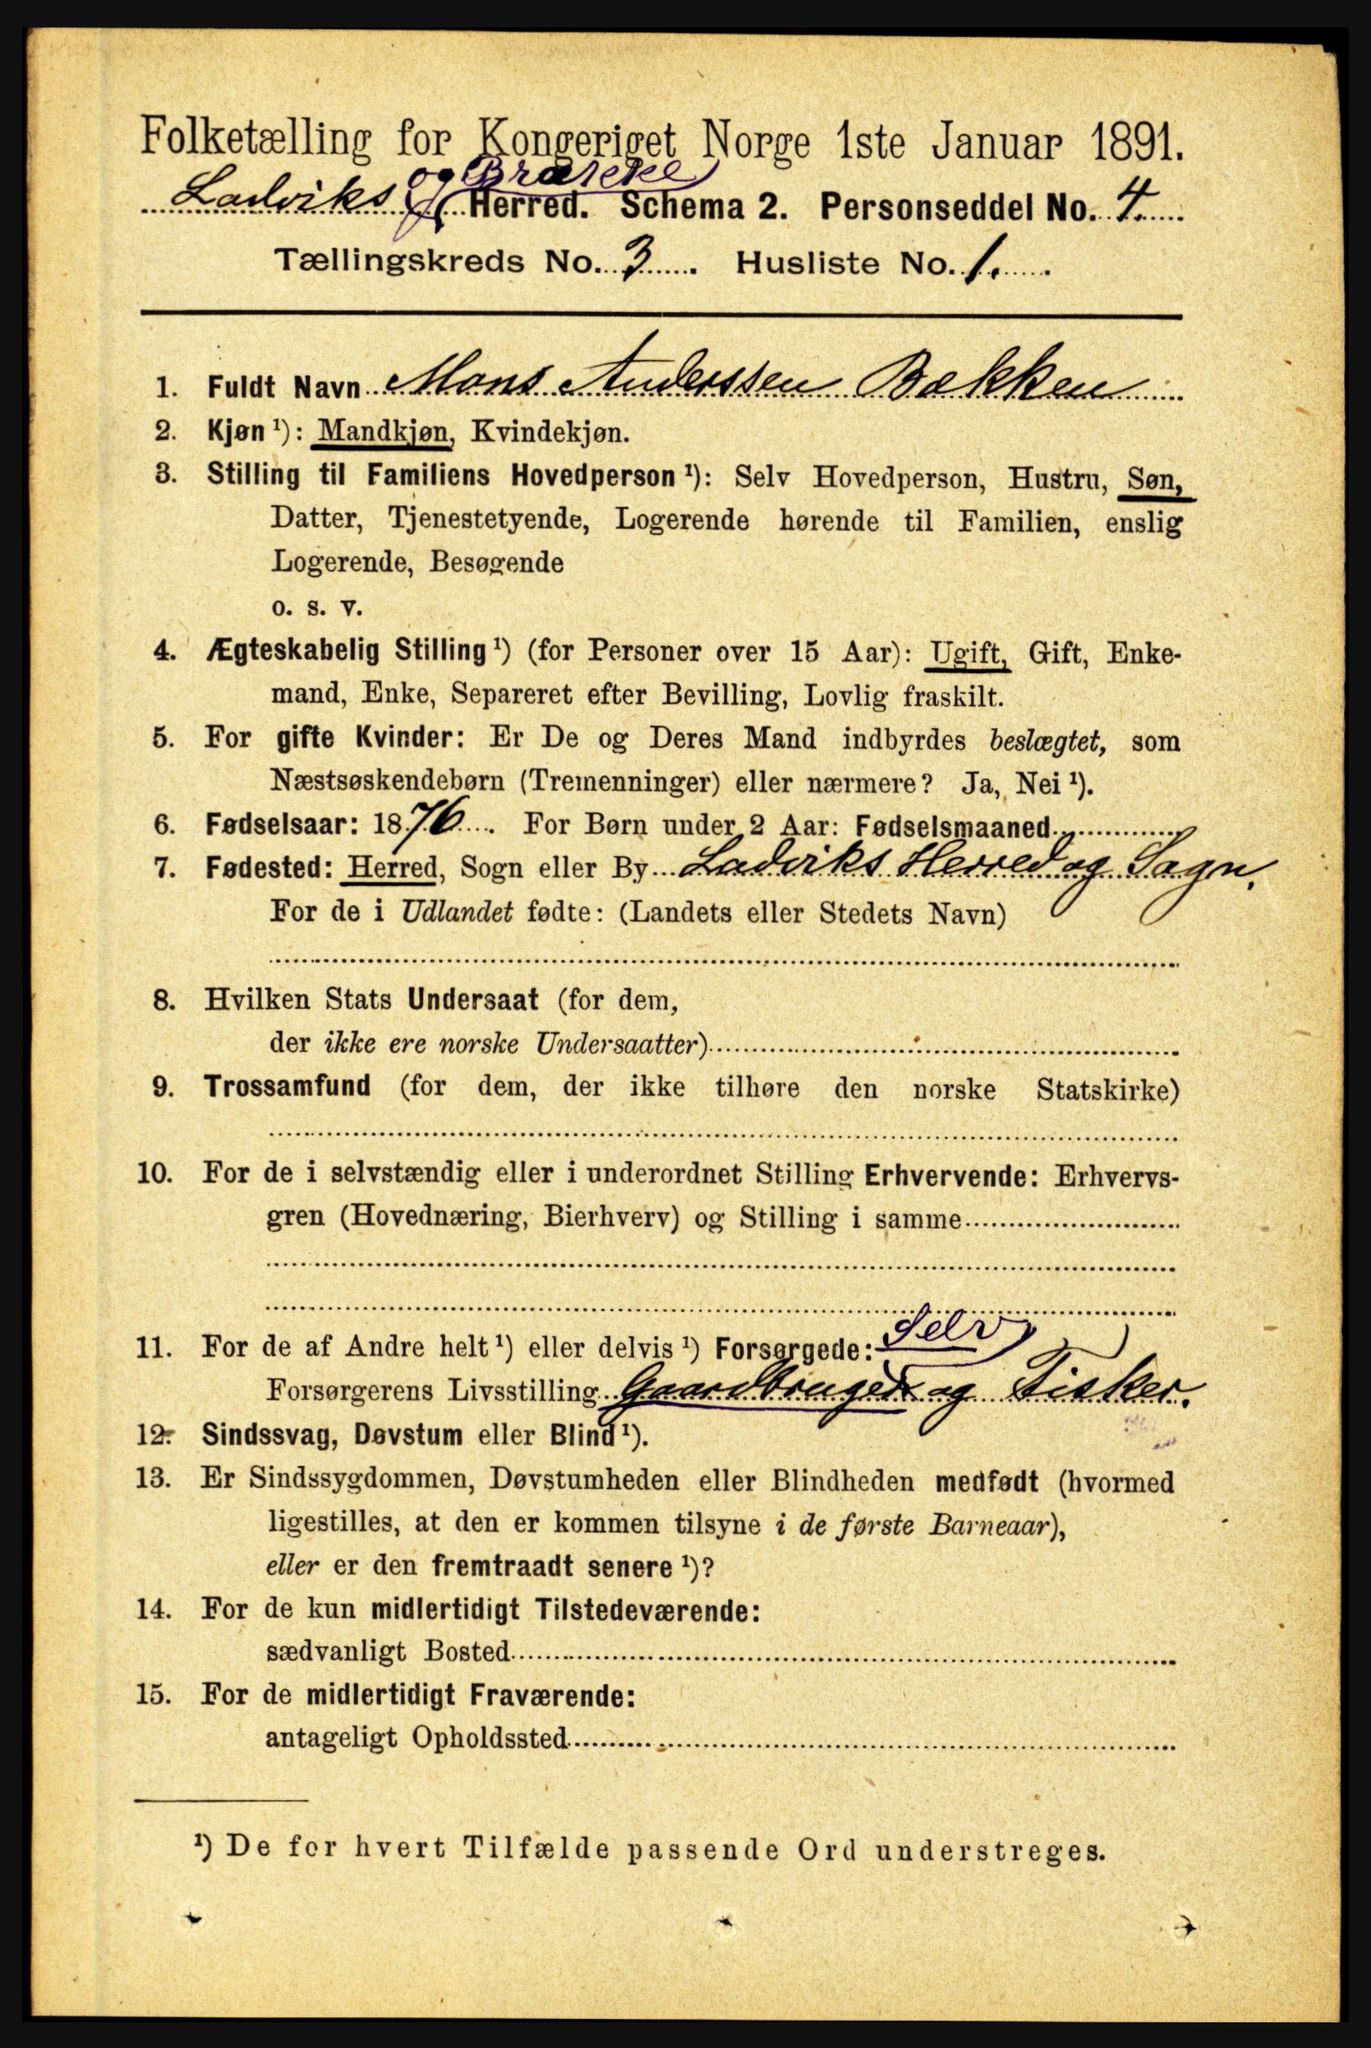 Folketælling for Kongeriget Norge 1ste Januar 1891.
Ladviks og Brække Herred. Schema 2. Personseddel No. 4.
Tællingskreds No. 3. Husliste No. 1.
1. Fuldt Navn Mons Anderssen Bækken
2. Kjøn ¹): Mandkjøn, Kvindekjøn.
3. Stilling til Familiens Hovedperson ¹): Selv Hovedperson, Hustru, Søn,
Datter, Tjenestetyende, Logerende hørende til Familien, enslig
Logerende, Besøgende
o. s. v.
4. Ægteskabelig Stilling ¹) (for Personer over 15 Aar): Ugift, Gift, Enke-
mand, Enke, Separeret efter Bevilling, Lovlig fraskilt.
5. For gifte Kvinder: Er De og Deres Mand indbyrdes beslægtet, som
Næstsøskendebørn (Tremenninger) eller nærmere? Ja, Nei ¹).
6. Fødselsaar: 1876. For Børn under 2 Aar: Fødselsmaaned
7. Fødested: Herred, Sogn eller By Ladviks Herred og Sogn.
For de i Udlandet fødte: (Landets eller Stedets Navn)
8. Hvilken Stats Undersaat (for dem,
der ikke ere norske Undersaatter)
9. Trossamfund (for dem, der ikke tilhøre den norske Statskirke)
10. For de i selvstændig eller i underordnet Stilling Erhvervende: Erhvervs-
gren (Hovednæring, Bierhverv) og Stilling i samme
11. For de af Andre helt ¹) eller delvis ¹) Forsørgede: Selv
Forsørgerens Livsstilling Gaardbruger og Fisker.
12. Sindssvag, Døvstum eller Blind ¹).
13. Er Sindssygdommen, Døvstumheden eller Blindheden medfødt (hvormed
ligestilles, at den er kommen tilsyne i de første Barneaar),
eller er den fremtraadt senere ¹)?
14. For de kun midlertidigt Tilstedeværende:
sædvanligt Bosted
15. For de midlertidigt Fraværende:
antageligt Opholdssted
¹) De for hvert Tilfælde passende Ord understreges.